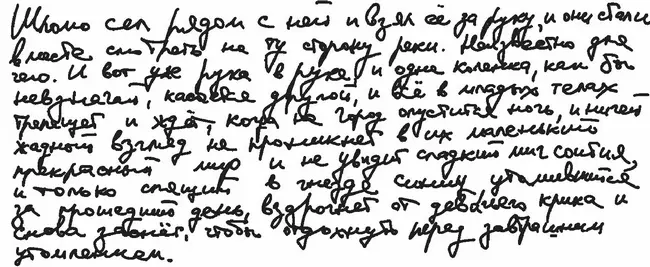 Шломо сел рядом с ней и взял её за руку, и они стали
вместе смотреть на ту сторону реки. Неизвестно для
чего. И вот уж рука в руке, и одна коленка, как бы
невзначай, касается другой, и всё в младых телах
трепещет и ждёт, когда на город опустится ночь, и ничей
жадный взгляд не проникнет в их маленький
прекрасный мир и не увидит сладкий миг соития,
и только спящий в гнезде синиц, утомившийся
за прошедший день, вздрогнет от девичьего крика и
снова заснёт, чтобы отдохнуть перед завтрашним
утомлением.